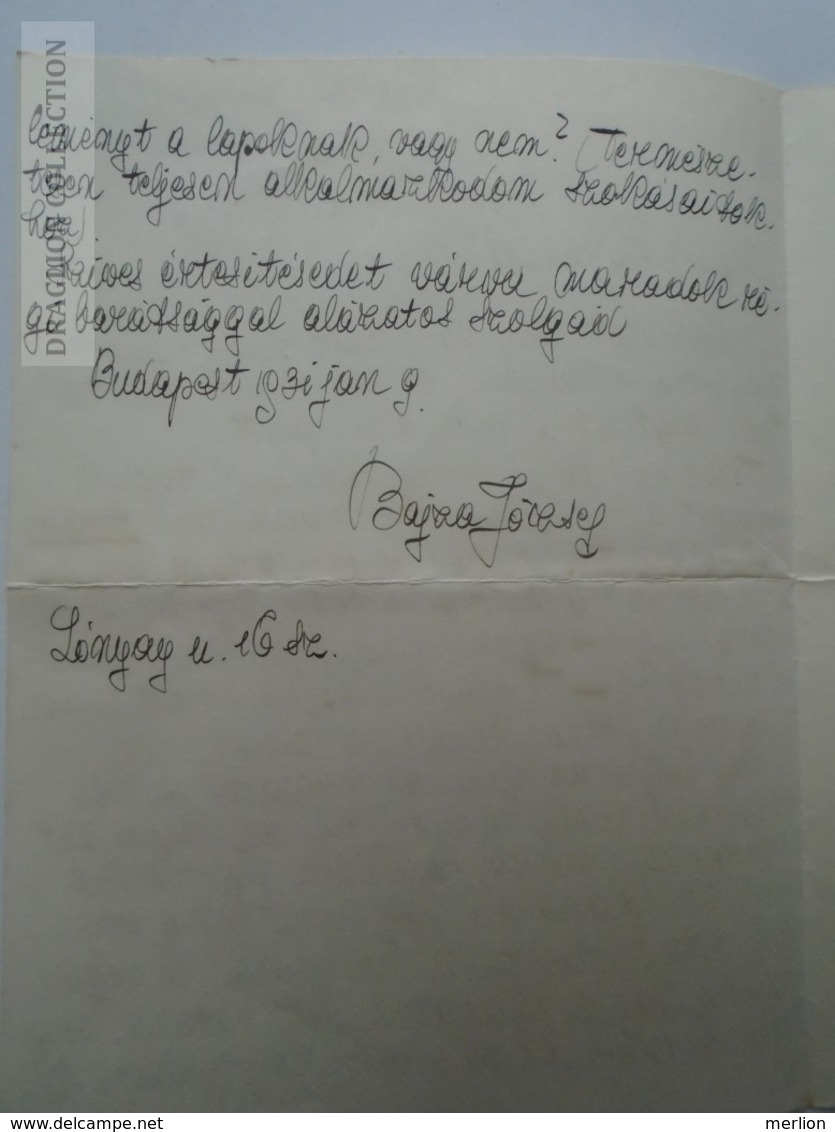 leményt a lapoknak, vagy nem? Természe-
tesen teljesen alkalmazkodom szokásaitok-
hoz.
Szíves értesítésedet várva maradok ré-
gi barátsággal alázatos szolgád
Budapest 1931 jan 9.
Bajza József
Lónyay u. 16 sz.
DRACTION COLLECTION
www.delcampe.net
merlion